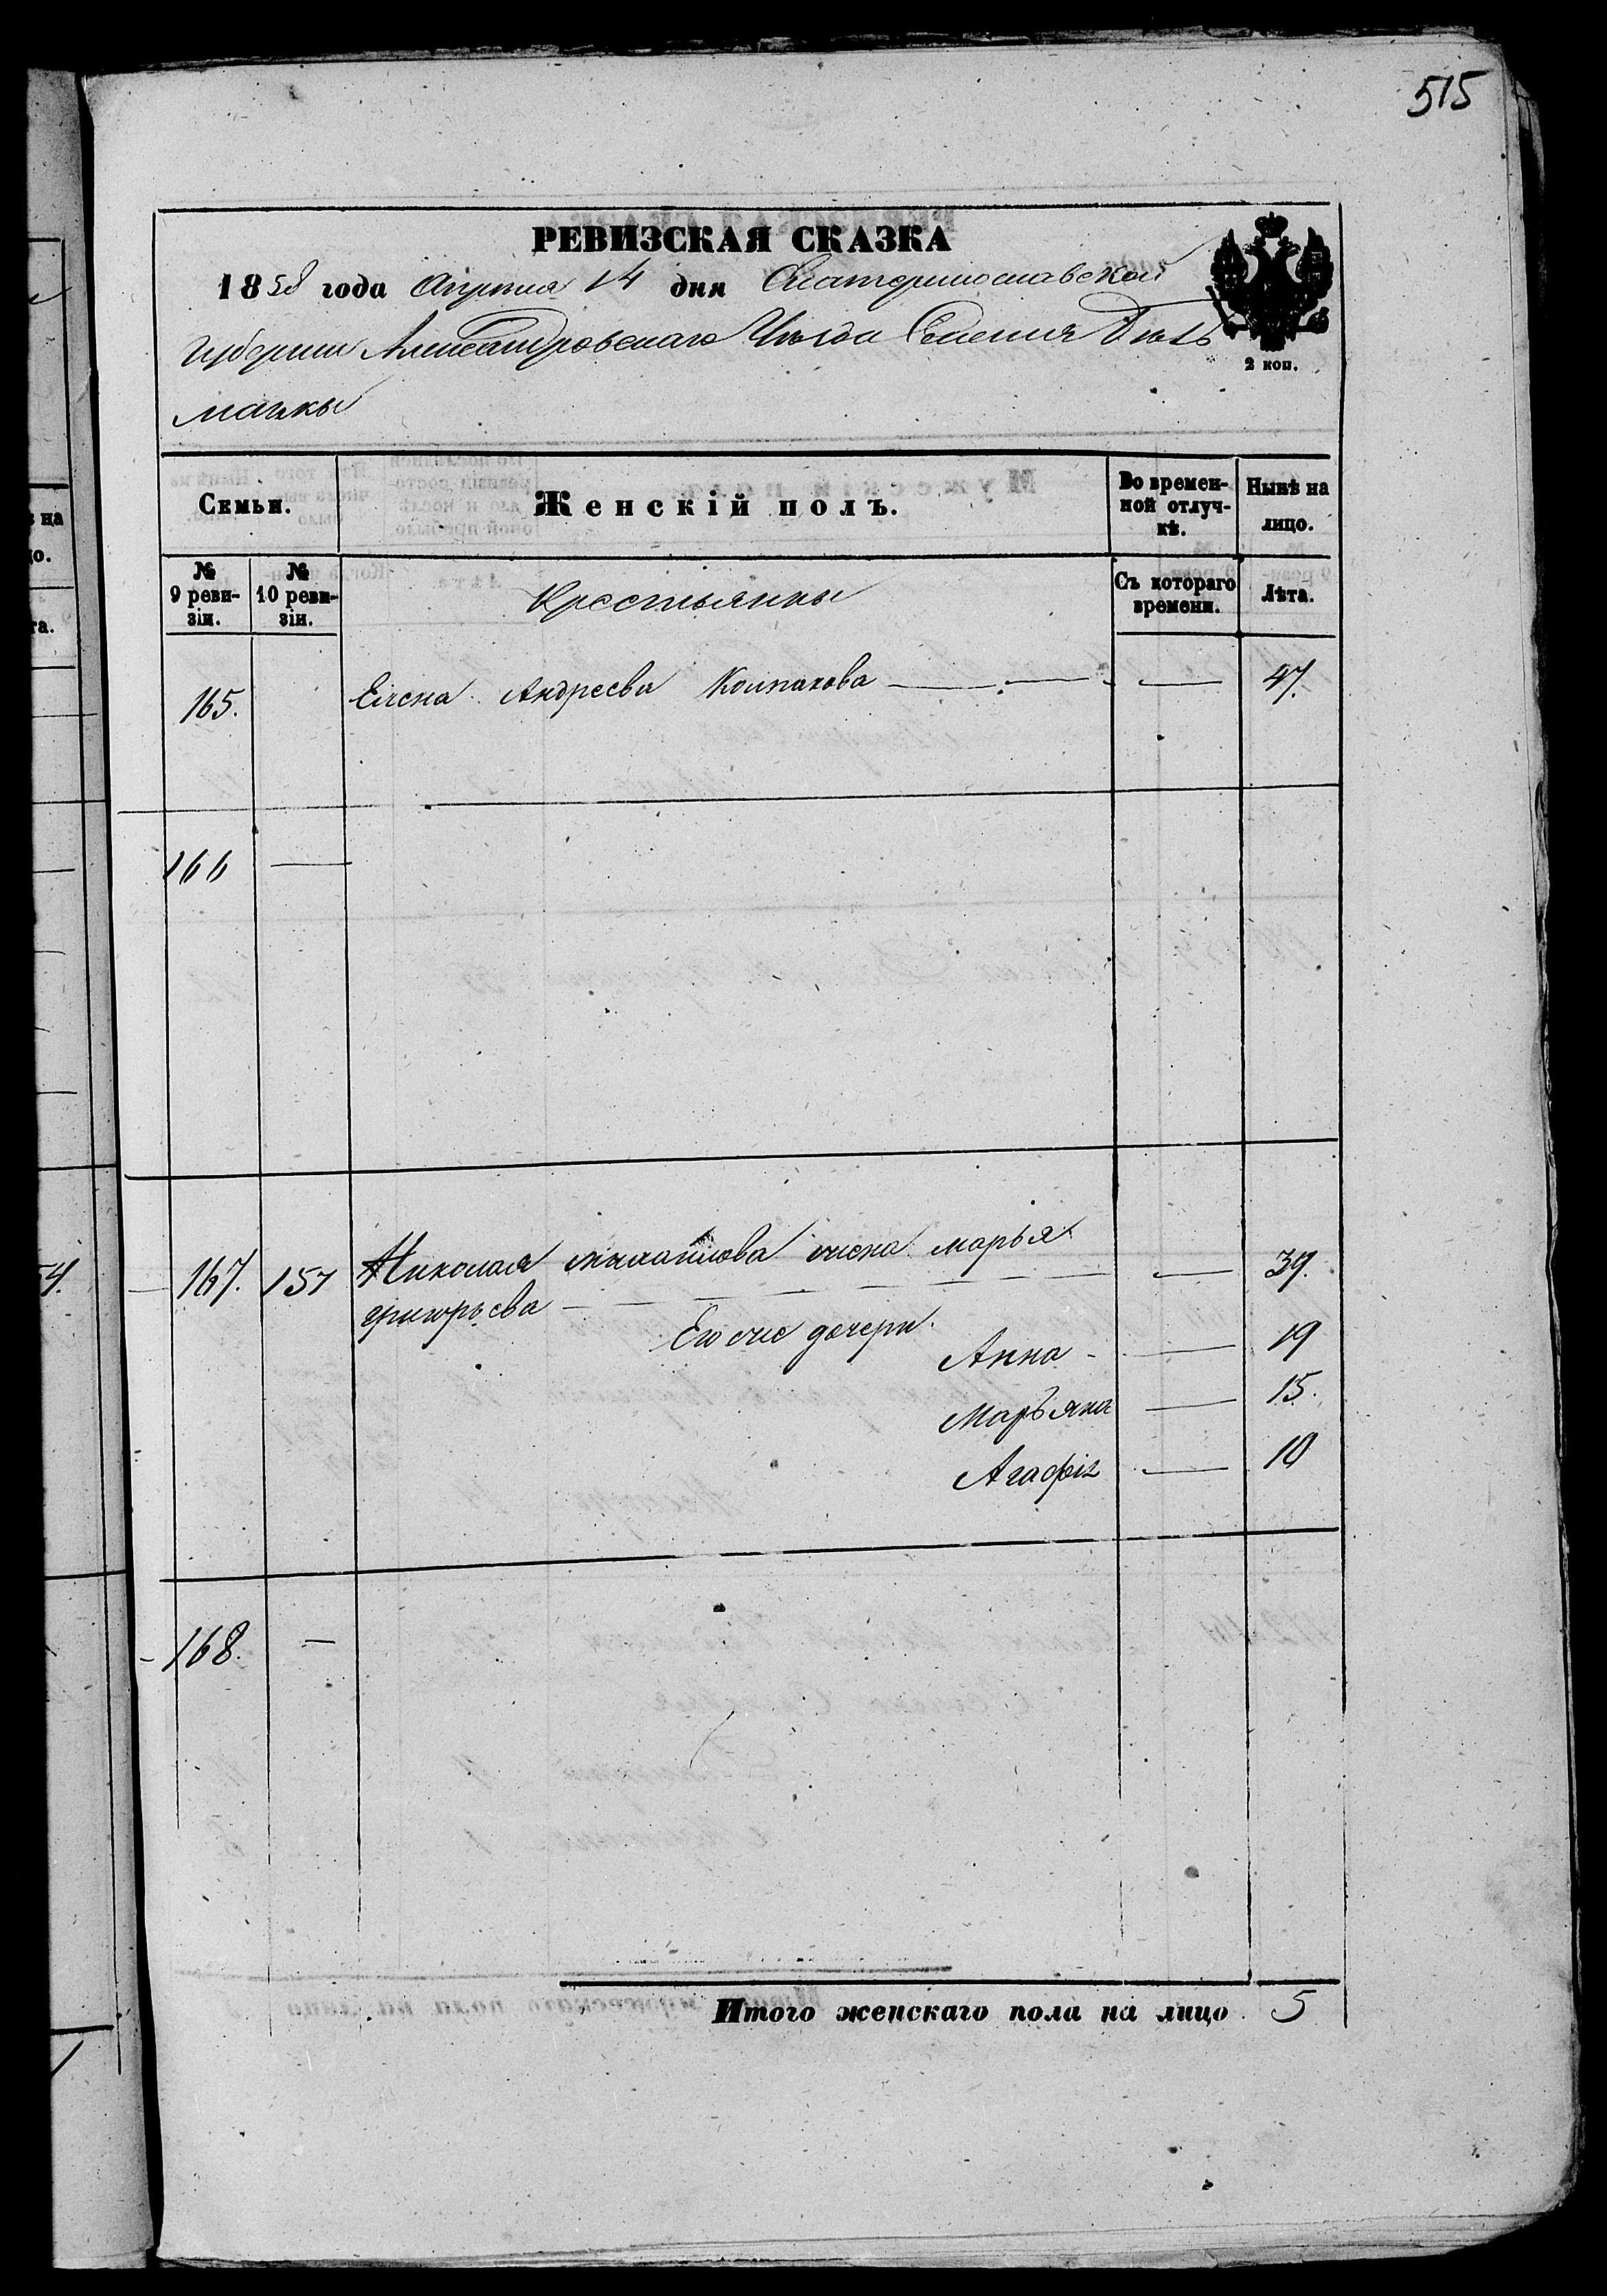 515
РЕВИЗСКАЯ СКАЗКА
1858 года Апреля 14 дня Екатеринославской
Губернии Александровскаго Уѣзда Селения Бѣль
мачкы
Семьи.
Женскій полъ.
Во времен-
ной отлуч-
кѣ.
Нынѣ на
лицо.
№
9 реви-
зіи.
№
10 реви-
зіи.
Крестьянны
Съ котораго
времени.
Лѣта.
165. Елена Андреева Колпакова 47.
166
167. 157 Николая михайлова жена марья 39.
григорьева
Его же дочери
Анна 19
Марьяна 15.
Агафія 10
168.
Итого женскаго пола на лицо 5
2 коп.